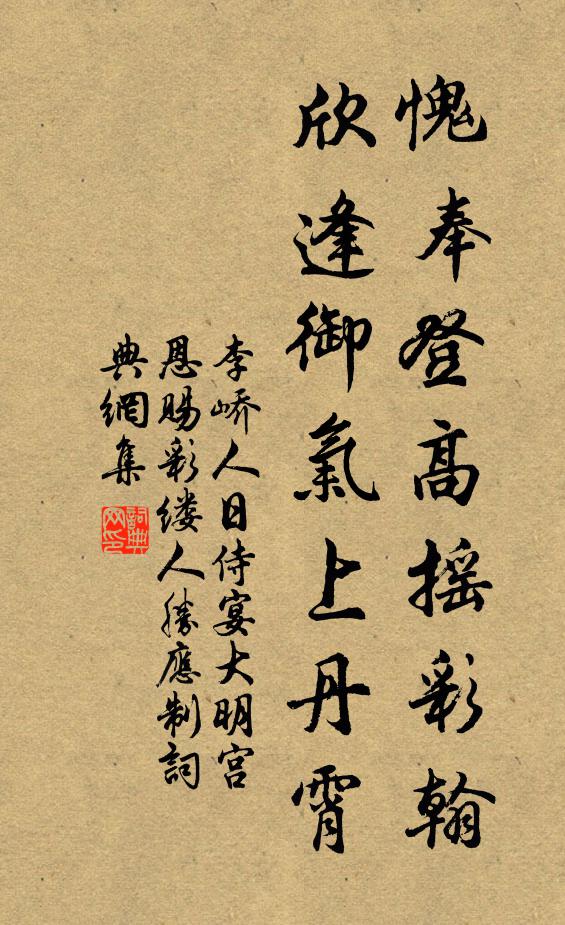 愧奉登高摇彩翰
欣逢御氣上丹霄
李峤人日侍宴大明宫
恩赐彩缕人勝應制詞
典網集
詞典網印